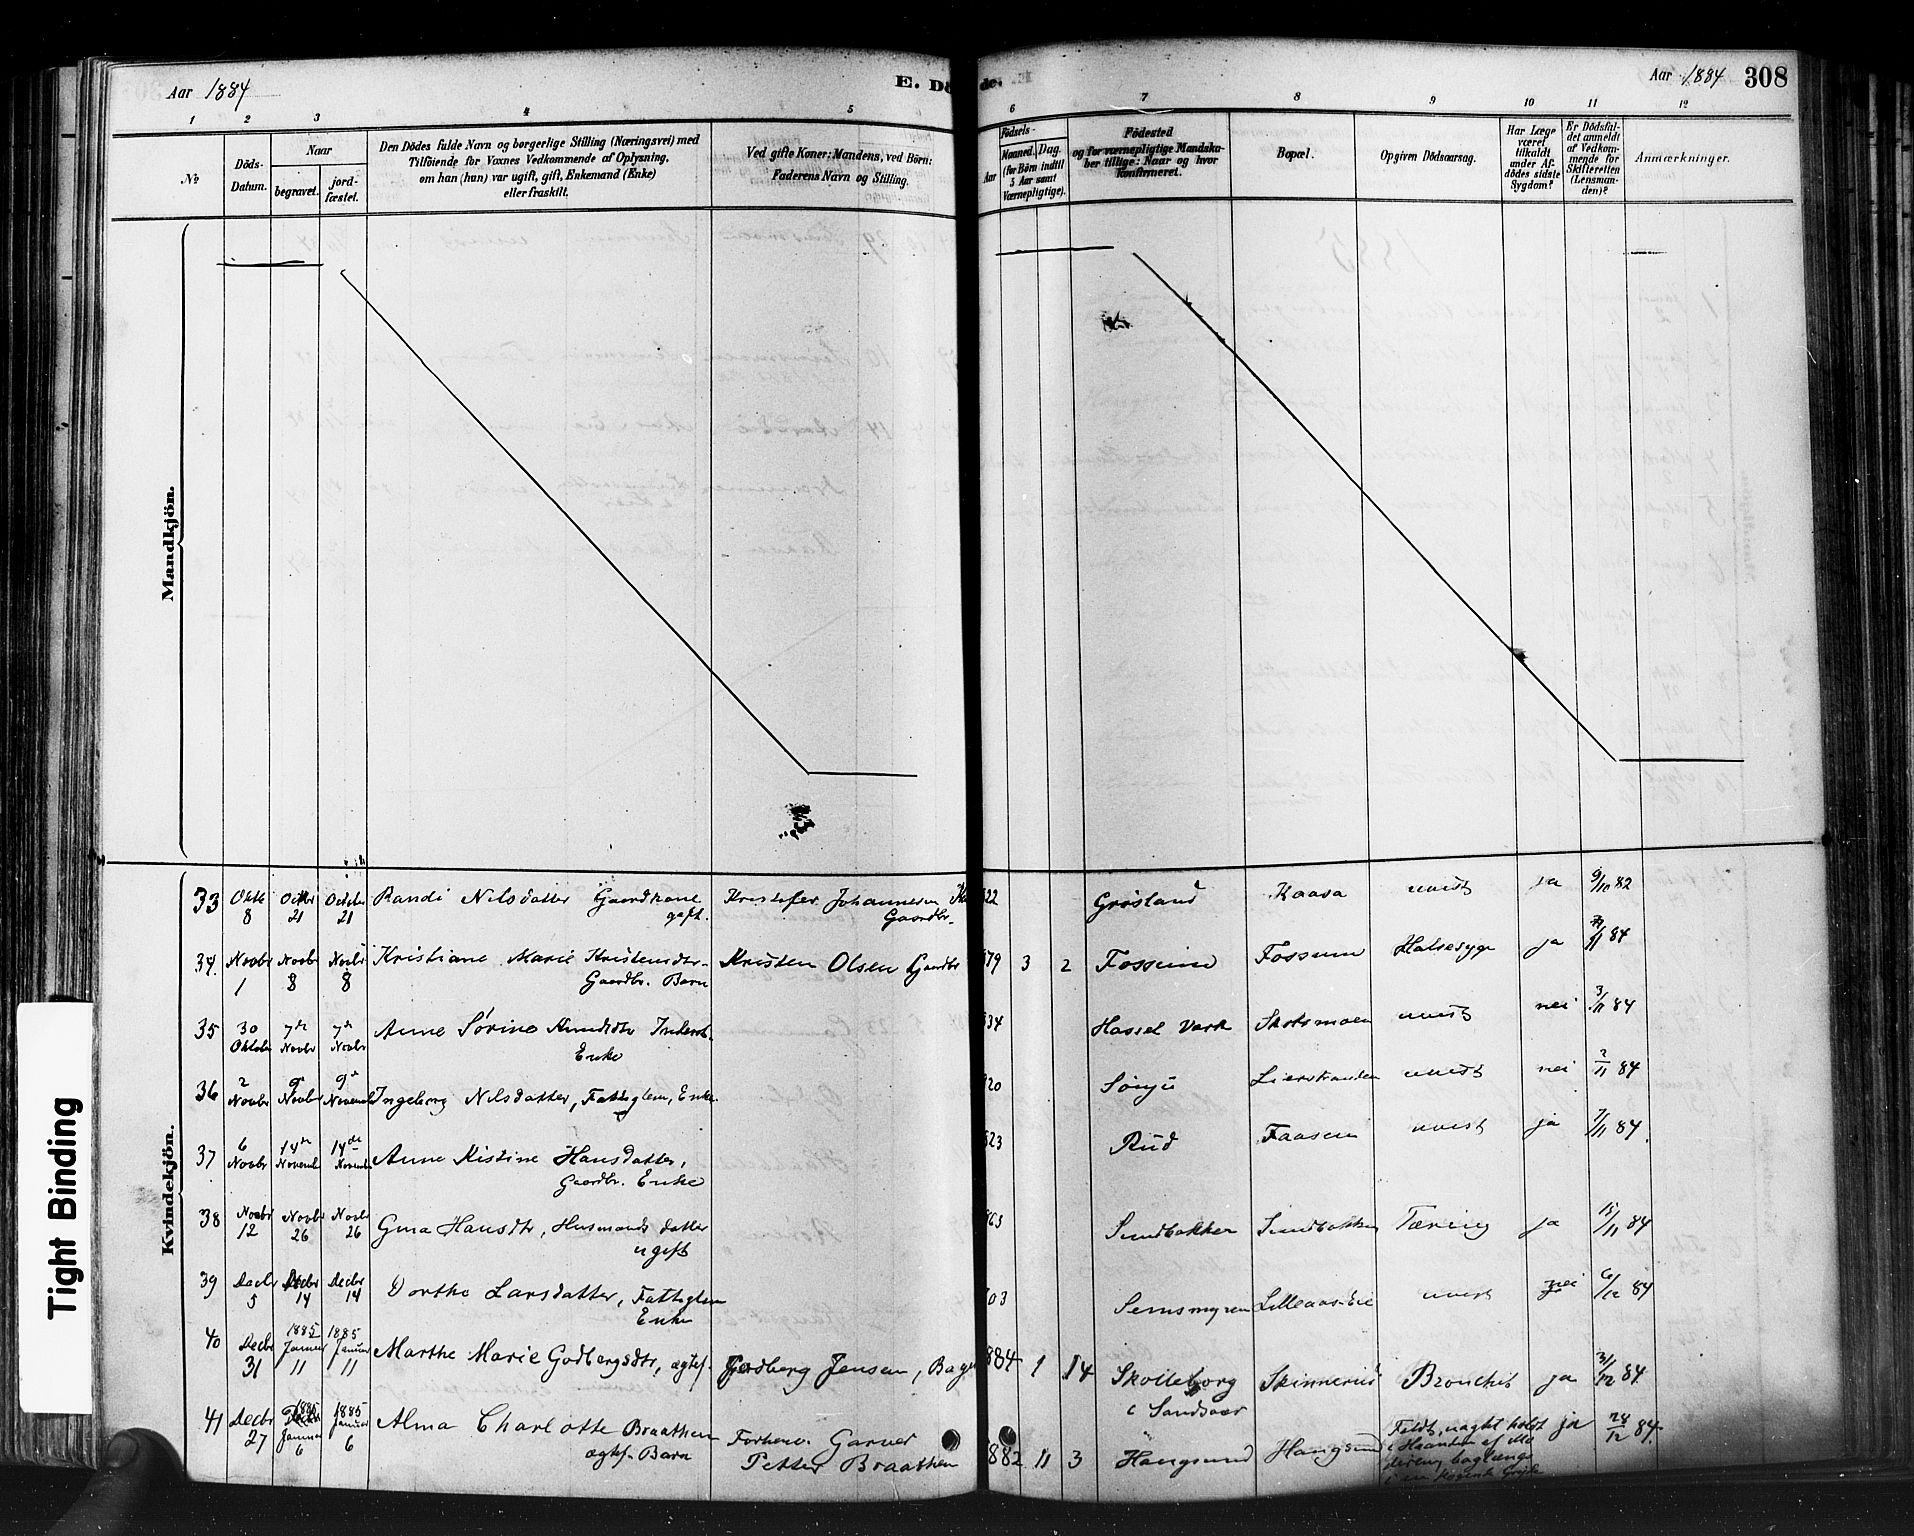 Aar 1884
E. Dö
de.
Aar 1884
308
1 2 3 4 5 6 7 8 9 10 11 12
No
Döds-
Datum.
Naar
begravet.
jord-
fæstet.
Den Dödes fulde Navn og borgerlige Stilling (Næringsvei) med
Tilföiende for Voxnes Vedkommende af Oplysning,
om han (hun) var ugift, gift, Enkemand (Enke)
eller fraskilt.
Ved gifte Koner: Mandens, ved Börn:
Faderens Navn og Stilling.
Födsels-
Aar
Maaned. Dag.
(for Börn indtil
5 Aar samt
Værnepligtige).
Födested
og for værnepligtige Mandska-
ber tillige: Naar og hvor
konfirmeret.
Bopæl.
Opgiven Dödsaarsag.
Har Læge
været
tilkaldt
under Af-
dödes sidste
Sygdom?
Er Dödsfal-
det anmeldt
af Vedkom-
mende for
Skifteretten
(Lensman-
den)?
Anmærkninger.
Mandkjön.
Kvindekjön.
33 Okto 8 October 21 October 21 Randi Nilsdatter Gaardkone gift. Kristofer Johannesen Gaardbr. 22 Grøsland Kaasa uvist ja 9/10 82
34. Novbr 1 Novbr 8 Novbr 8 Kristiane Marie Kristensdtr Gaardbr. Barn Kristen Olsen Gaardbr 79 3 2 Fossum Fossum Halsesyge ja 84
35 30 Oktober 7de Novbr 7de Novbr Anne Sørine Knudsdtr Inderst Enke 34 Hassel Værk Skotsmoen uvist nei 3/11 84
36 2 Novbr 9de Novbr 9de Novemb Ingeborg Nilsdatter, Fattiglem, Enke 20 Lierstranden uvist nei 2/11 84
37 6 Novbr 14de Novemb 14de Novemb Anne Kistine Hansdatter, Gaardbr. Enke 23 Rud Faasen uvist ja 7/11 84
38 Novbr 12 Novbr 26 Novbr 26 Gina Hansdtr, Husmands datter ugift 63 Sundbakken Sundbakken Tæring ja 15/11 84
39 Decbr 5 Decbr 14 Decbr 14 Dorthe Larsdatter, Fattiglem Enke 03 Semsmyren Lilleaas-Eie uvist nei 6/12 84
40 Decbr 31 1885 Januar 11 1885 Januar 11 Marthe Marie Godbergsdtr, ægtef. Godberg Jensen, 884 1 14 Skolleborg i Sandsvær Skinnerud Bronchit ja 31/12 84
41 Decbr 27 1885 Januar 6 1885 Januar 6 Alma Charlotte Braathen ægtef. Barn Forhenv. Garver Petter Braathen 882 11 3 Haugsund Haugsund Faldt, uagt holdt i Haanden af Mo deren, baglængs ja 28/12 84.
Tight Binding